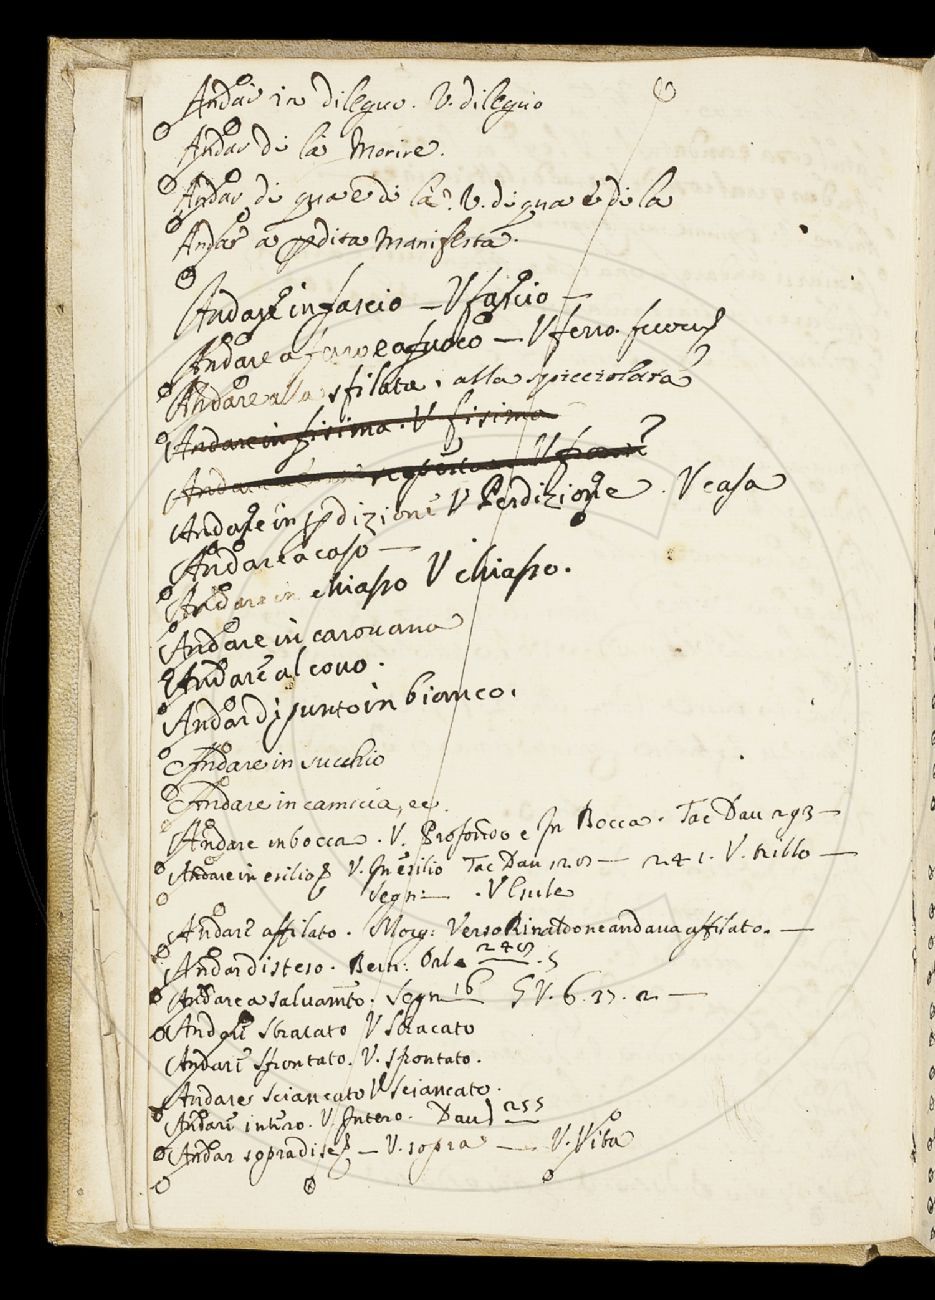 Andar in dileguo. V. dileguo
Andar di là Morire.
Andar di qua e di là. V. di qua e di la
Andar a pdita manifesta.
Andare in fascio — V fascio —
Andare a ferro e a fuoco — V ferro.
Andare alla sfilata. alla spicciolata
Andare in fisima. V fisima
Andare V
Andare in pdizione V Perdizione. V casa
Andare a caso —
Andare in chiasso V chiasso.
Andare in carovana
Andare al covo.
Andar di punto in bianco.
Andare in succhio
Andare in camicia, ec.
Andare in bocca. V. Profondo e In Bocca. Tac Dav 293 —
Andare in esilio V. In esilio Tac Dav — 241. V. —
Segn: — . V Esule
Andare affilato. Morg: Verso Rinaldo ne andava affilato. —
Andar disteso. Bern: Orl.
Andare a salvamto. Segn 16 V. 6. 37. 2 —
Andare sbracato V sbracato
Andare sfrontato. V. sfrontato.
Andare sciancato V sciancato.
Andare intero. V. Intero. Dav 255
Andar sopra di se — V. sopra — V. Vita